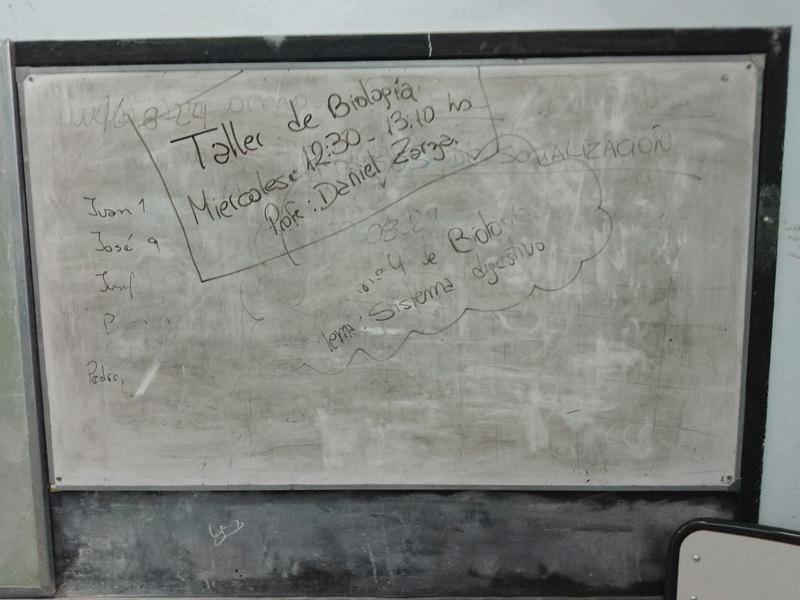 Taller de Biología
Miércoles: 12:30 - 13:10 hs
Profe: Daniel Zarza.
SOCIALIZACIÓN
Juan 1
José 9
nº 4 de Biología
Tema: Sistema digestivo
Pedro,